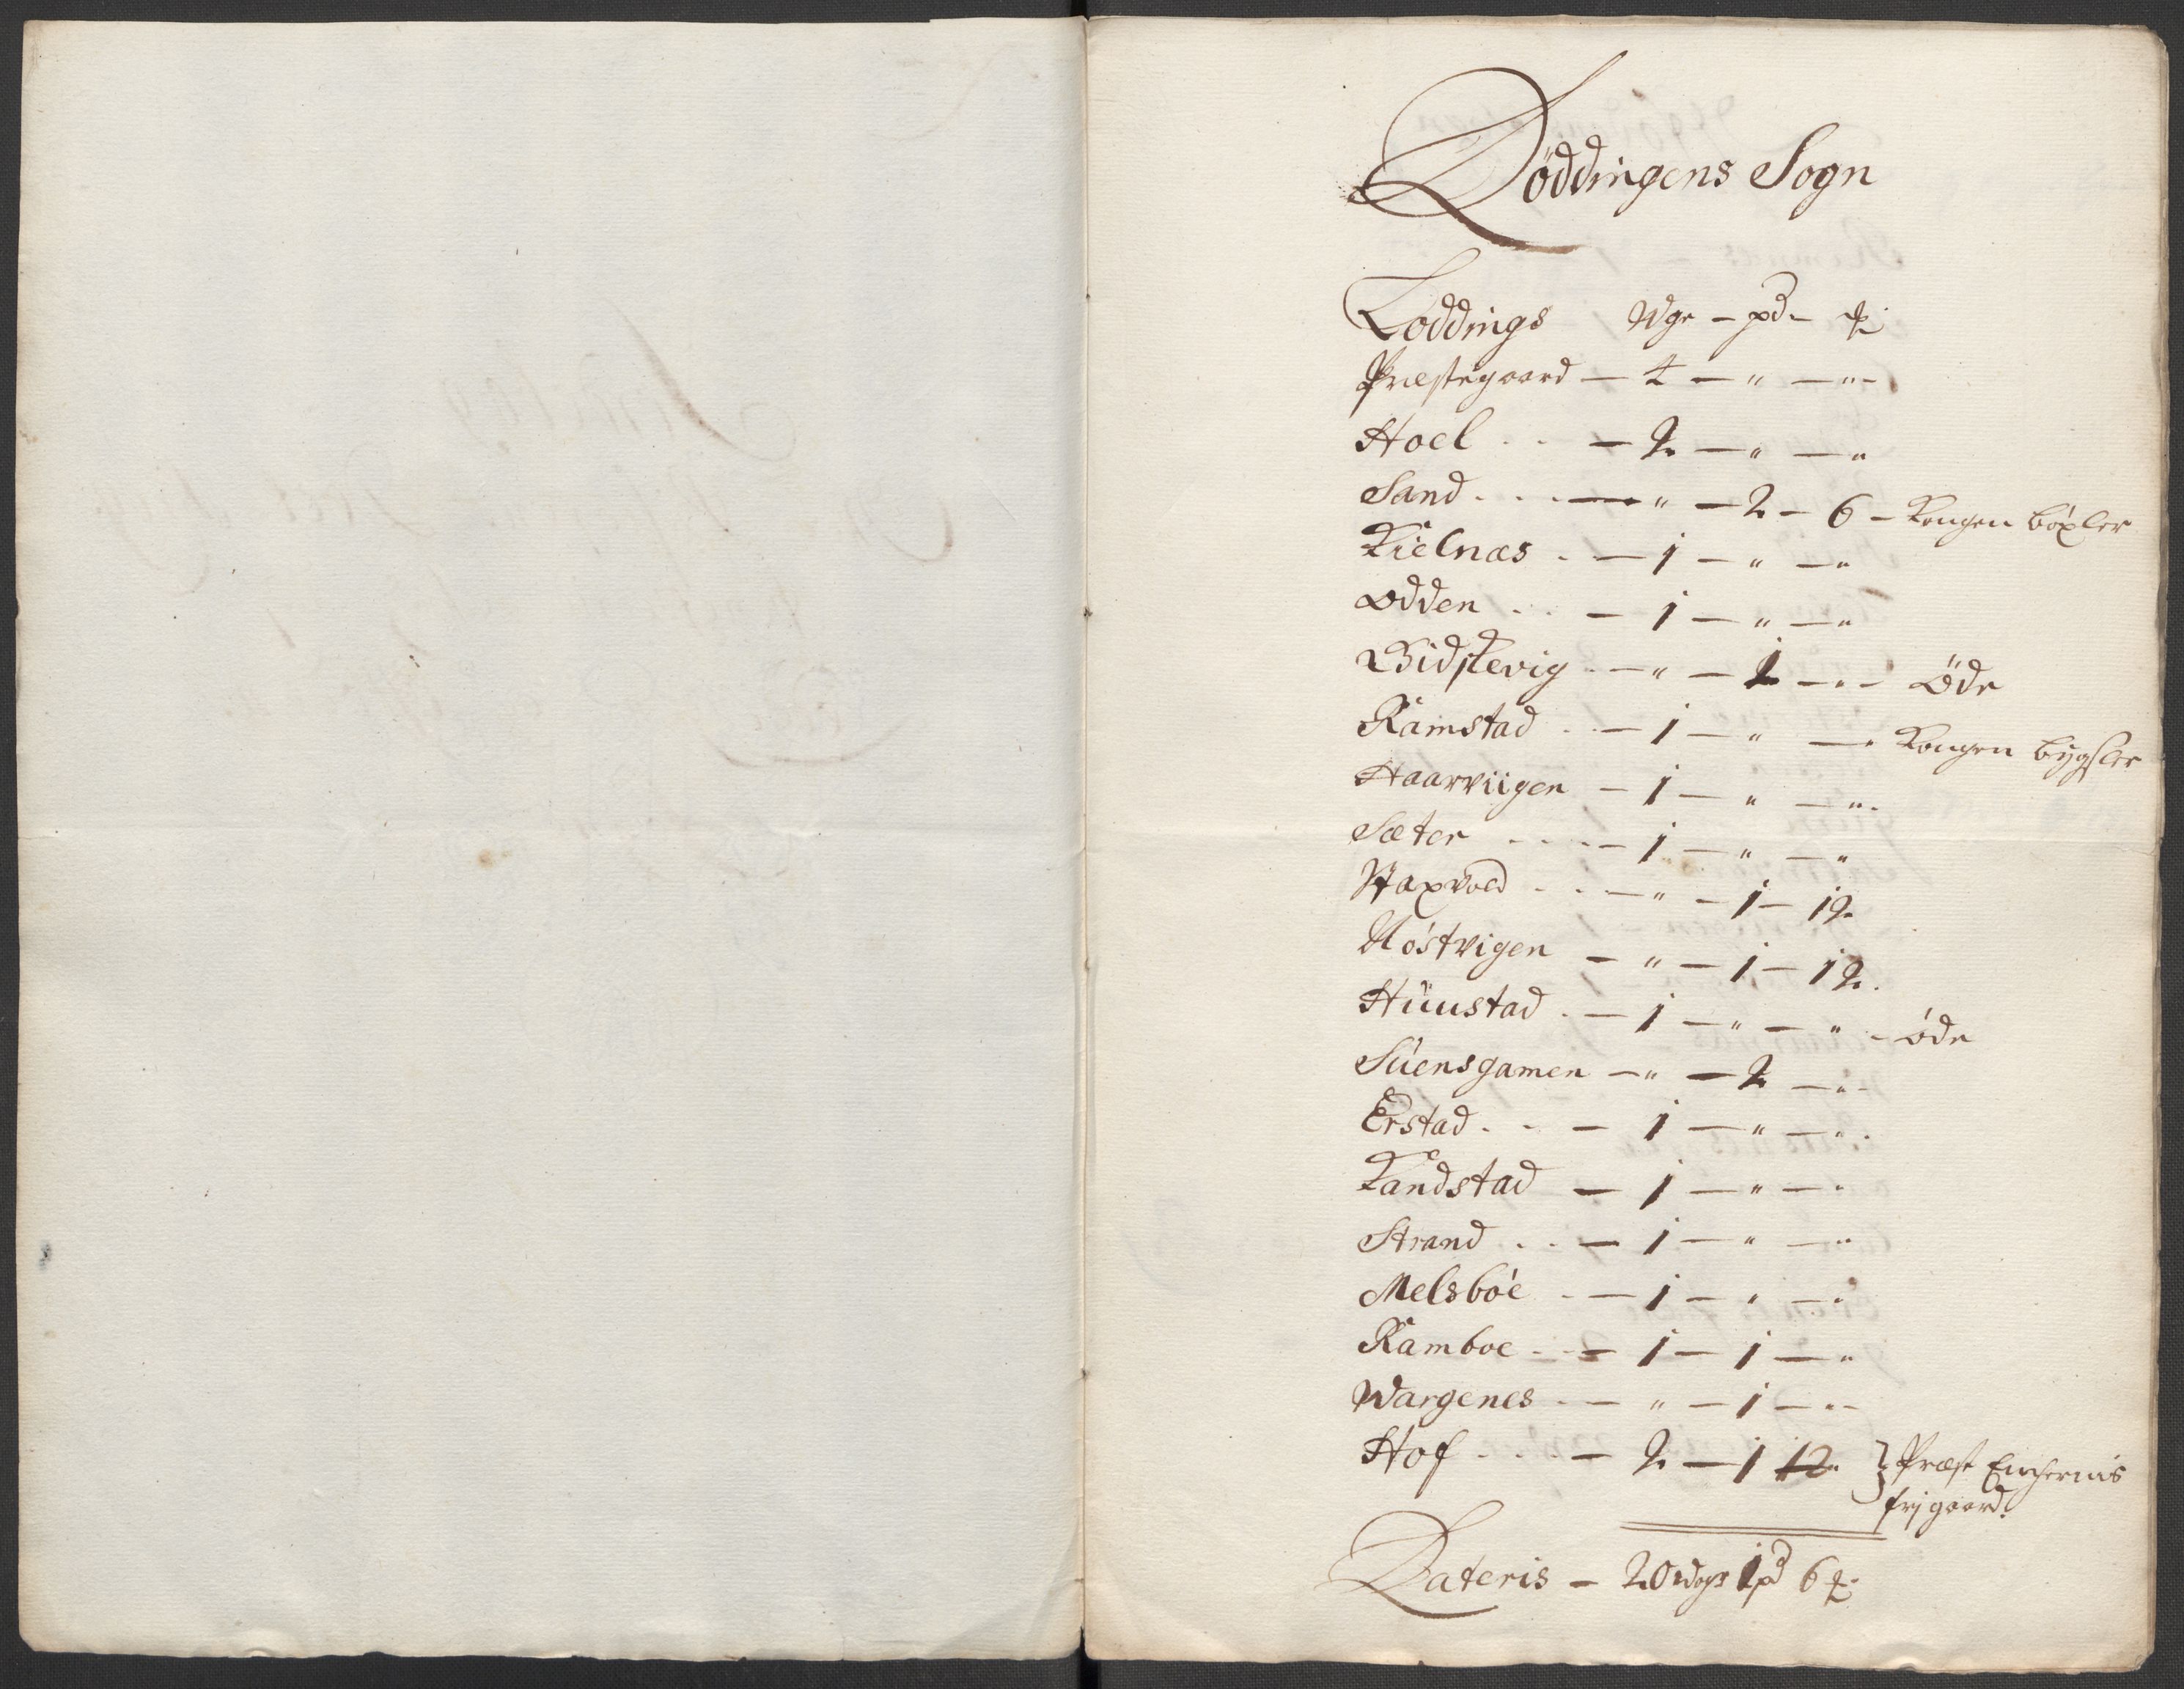 Löddingens Sogn
Loddings Wge – pd – ₰
Præstegaard – 2 – " – "
Hoel . . – 2 – " – "
Sand . . . – " – 2 – 6 – Kongen böxler
Kielnæs . – 1 – " – "
Odden . . – 1 – " – "
Bidstevig . – " – 1 – " – Öde
Ramstad . – 1 – " – " Kongen bygsler
Haarviigen – 1 – " – "
Sæter . . . – 1 – " – "
Staxvold . . – " – 1 – 12
Nöstvigen – " – 1 – 12.
Huustad . – 1 – " – " – öde
Suensgamen – " – 2 – "
Erstad . . – 1 – " – "
Kandstad – 1 – " – "
Strand . . – 1 – " – "
Melsböe . – 1 – " – "
Ramboe . . – 1 – 1 – "
Wargenes . – " – 1 – "
Hof . . . – 2 – 1 12 } Præst
frj gaard.
Lateris – 20 woger 1 pd 6 ₰